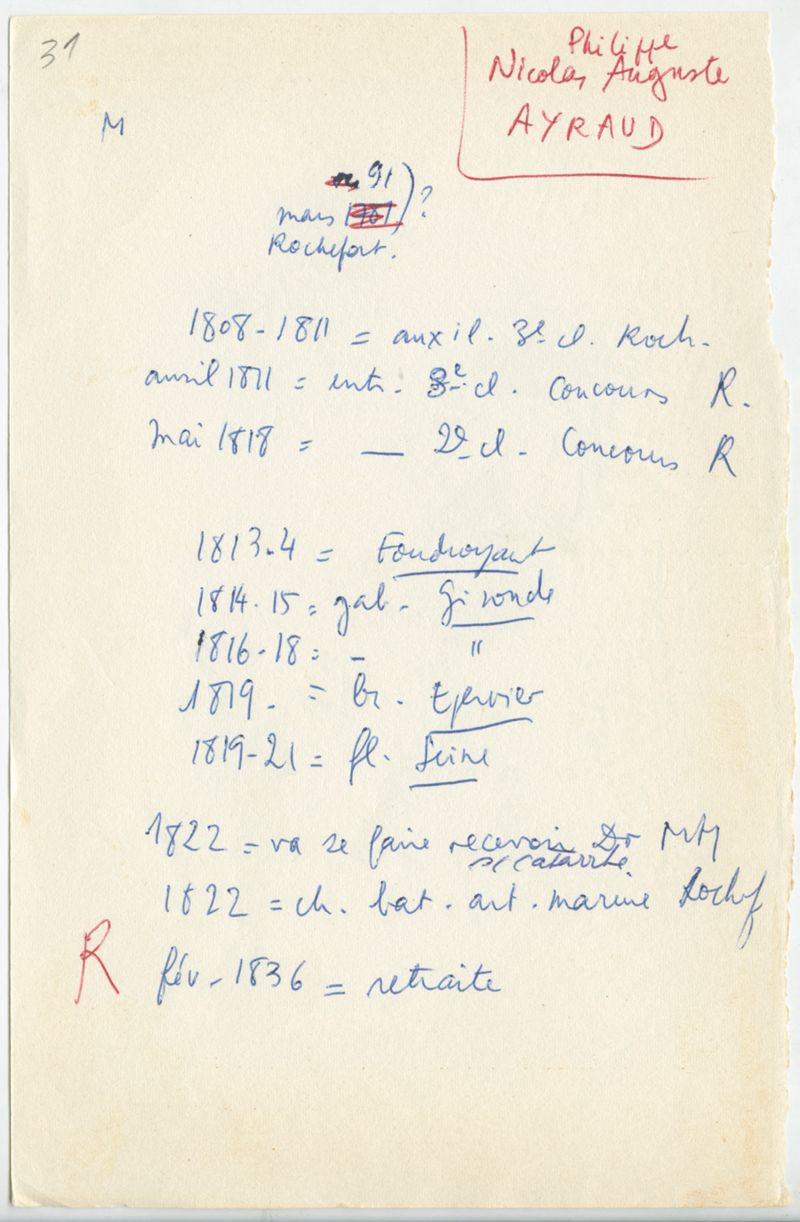 31
Philippe
Nicolas Auguste
AYRAUD
M
91
mars 1781 ) ?
Rochefort.
1808-1811 = auxil. 3e cl. Roch.
avril 1811 = entr. 3e cl. Concours R.
mai 1818 = — 2e cl. Concours R
1813.4 = Foudroyant
1814.15 = gab. Gironde
1816.18 = - "
1819. = br. Epervier
1819-21 = fl. Seine
1822 = va se faire recevoir Dr MM
1822 = ch. bat. art. marine Rochf
R fév. 1836 = retraite